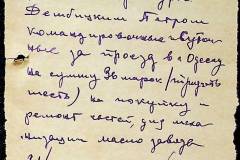 Дембицким Петром
командировочные и суточ
ные за проезд в г Одессу
на сумму 36 марок /тридцать
шесть/ на покупку и
ремонт частей, для меха
низации масло завода